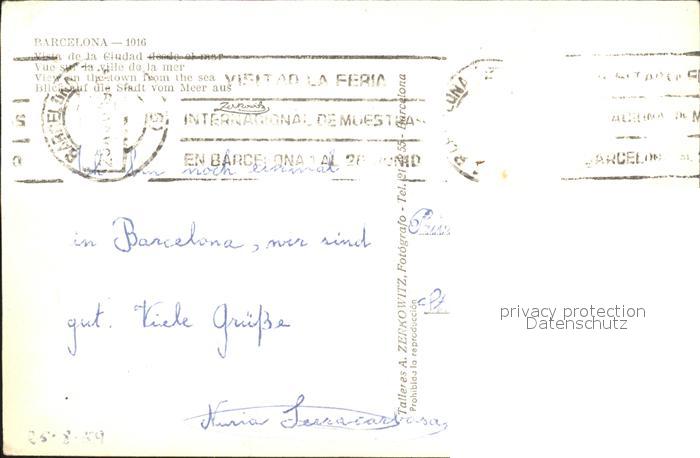 BARCELONA — 1016
Vista de la Ciudad desde el mar
Vue sur la ville de la mer
View on the town from the sea
Blick auf die Stadt vom Meer aus
VISITAD LA FERIA
INTERNACIONAL DE MUESTRAS
EN BARCELONA 1 AL 20 JUNIO
BARCELONA
Zerkowitz
Ich bin noch einmal
in Barcelona, wir sind
gut. Viele Grüße
Nuria Serracarbassa
25-8-59
Talleres A. ZERKOWITZ, Fotógrafo - Tel. Barcelona
Prohibida la reproducción
BARCELONA
privacy protection
Datenschutz